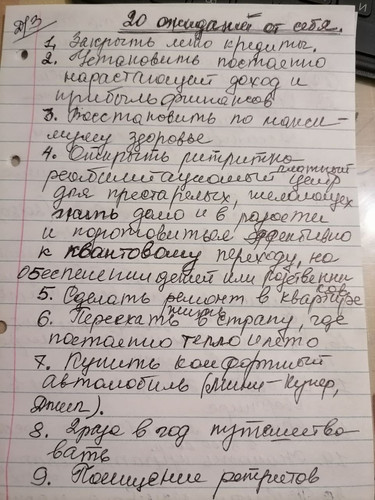 д/з 20 ожиданий от себя.
1. Закрыть легко кредиты.
2. Установить постоянно
нарастающий доход и
прибыль финансов
3. Восстановить по макси-
муму здоровье
4. Открыть ретритно
реабилитационный платный центр
для престарелых, желающих
жить долго и в радости
и подготовиться эффективно
к квантовому переходу, на
обеспечении детей или родственни
ков
5. Сделать ремонт в квартире
6. Переехать жить в страну, где
постоянно тепло и лето
7. Купить комфортный
автомобиль (Мини-Купер,
Джип).
8. 2 раза в год путешество
вать
9. Посещение ретритов